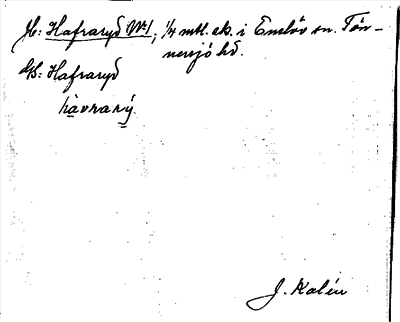 Hafraryd No 1, 1/4 mtl. sk. i Emlöv sn. Tön-
nersjö hd.
Hafraryd
hàvrarý.
J. Kalén